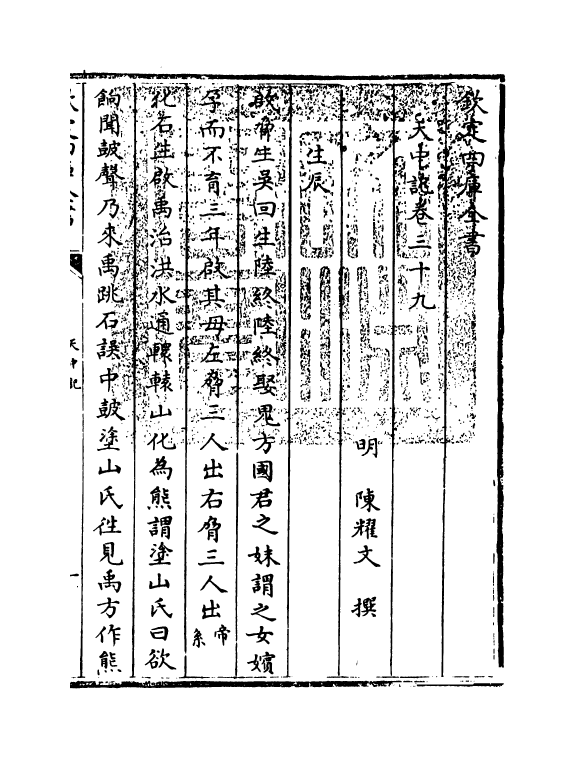 欽定四庫全書
天中記卷三十九
明 陳耀文 撰
生辰
啟脅生吳回生陸終陸終娶鬼方國君之妹謂之女嬪
孕而不育三年啟其母左脅三人出右脅三人出帝系
化石生啟禹治洪水通轘轅山化為熊謂塗山氏曰欲
餉聞鼓聲乃來禹跳石誤中鼓塗山氏往見禹方作熊
天中記
一